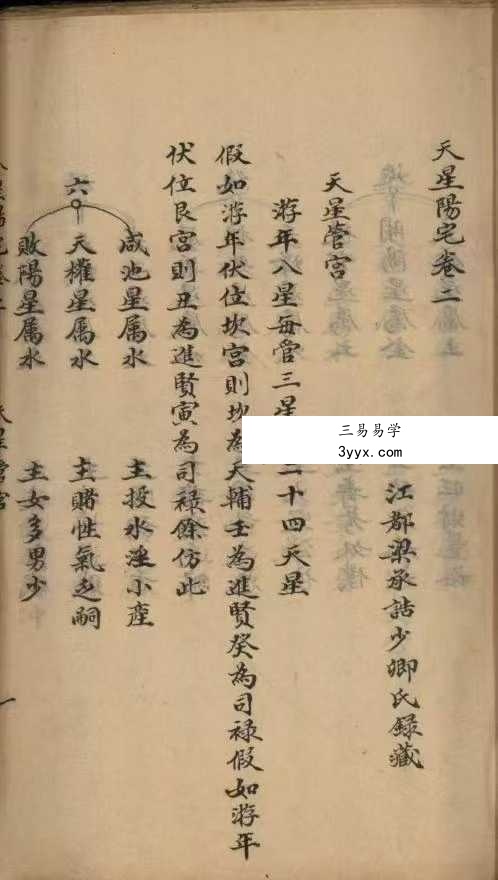 天星陽宅卷二
江都梁承誥少卿氏錄藏
天星管宮
游年八星每管三星
二十四天星
假如游年伏位坎宮則坎為天輔壬為進賢癸為司祿假如游年
伏位艮宮則丑為進賢寅為司祿餘仿此
咸池星属水 主投水淫小產
六 天權星属水 主賭性氣乏嗣
敗陽星属水 主女多男少
天星管宮
一
三易易学
3yyx.com